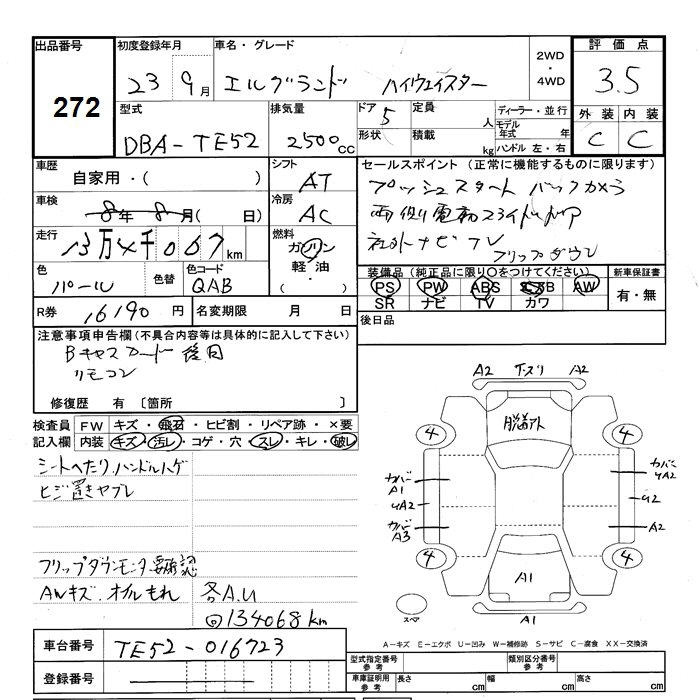 出品番号 初度登録年月 車名・グレード 2WD・4WD 評価点
272 23 9月 エルグランド ハイウェイスター 3.5
型式 排気量 ドア 5 定員 人 ディーラー・並行 外装 内装
DBA-TE52 2500cc 形状 積載 kg モデル年式 年 ハンドル 左・右 C C
車歴 シフト セールスポイント (正常に機能するものに限ります)
自家用・( ) AT プッシュスタート バックカメラ
車検 8年8月( 日) 冷房 AC 両側電動スライドドア
走行 13万4千067km 燃料 ガソリン 軽油・( ) 社外ナビTV
フリップダウン
色 色替 色コード 装備品 (純正品に限り○をつけてください) 新車保証書
パール QAB PS PW ABS AW 有・無
SR ナビ TV カワ
R券 16190円 名変期限 月 日 後日品
注意事項申告欄(不具合内容等は具体的に記入して下さい)
Bキャスカード 後日
リモコン
修復歴 有 〔箇所 〕
検査員 FW キズ・飛石・ヒビ割・リペア跡・×要
記入欄 内装 キズ・汚レ・コゲ・穴・スレ・キレ・破レ
シートへたり ハンドルハゲ
ヒジ置きヤブレ
フリップダウンモニタ要確認
AWキズ.オイルもれ 各A.U
@134068km
A2 A2
4 4
カバー A1 カバー UA2
UA2 U2
カバー A3 A2
4 4
A1
スペア A1
A-キズ E-エクボ U-凹み W-補修跡 S-サビ C-腐食 XX-交換済
車台番号 TE52-016723
型式指定番号 参考 類別区分番号 参考
登録番号 車庫証明用 参考 長さ cm 幅 cm 高さ cm